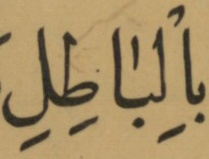 بِالْبٰاطِلِ